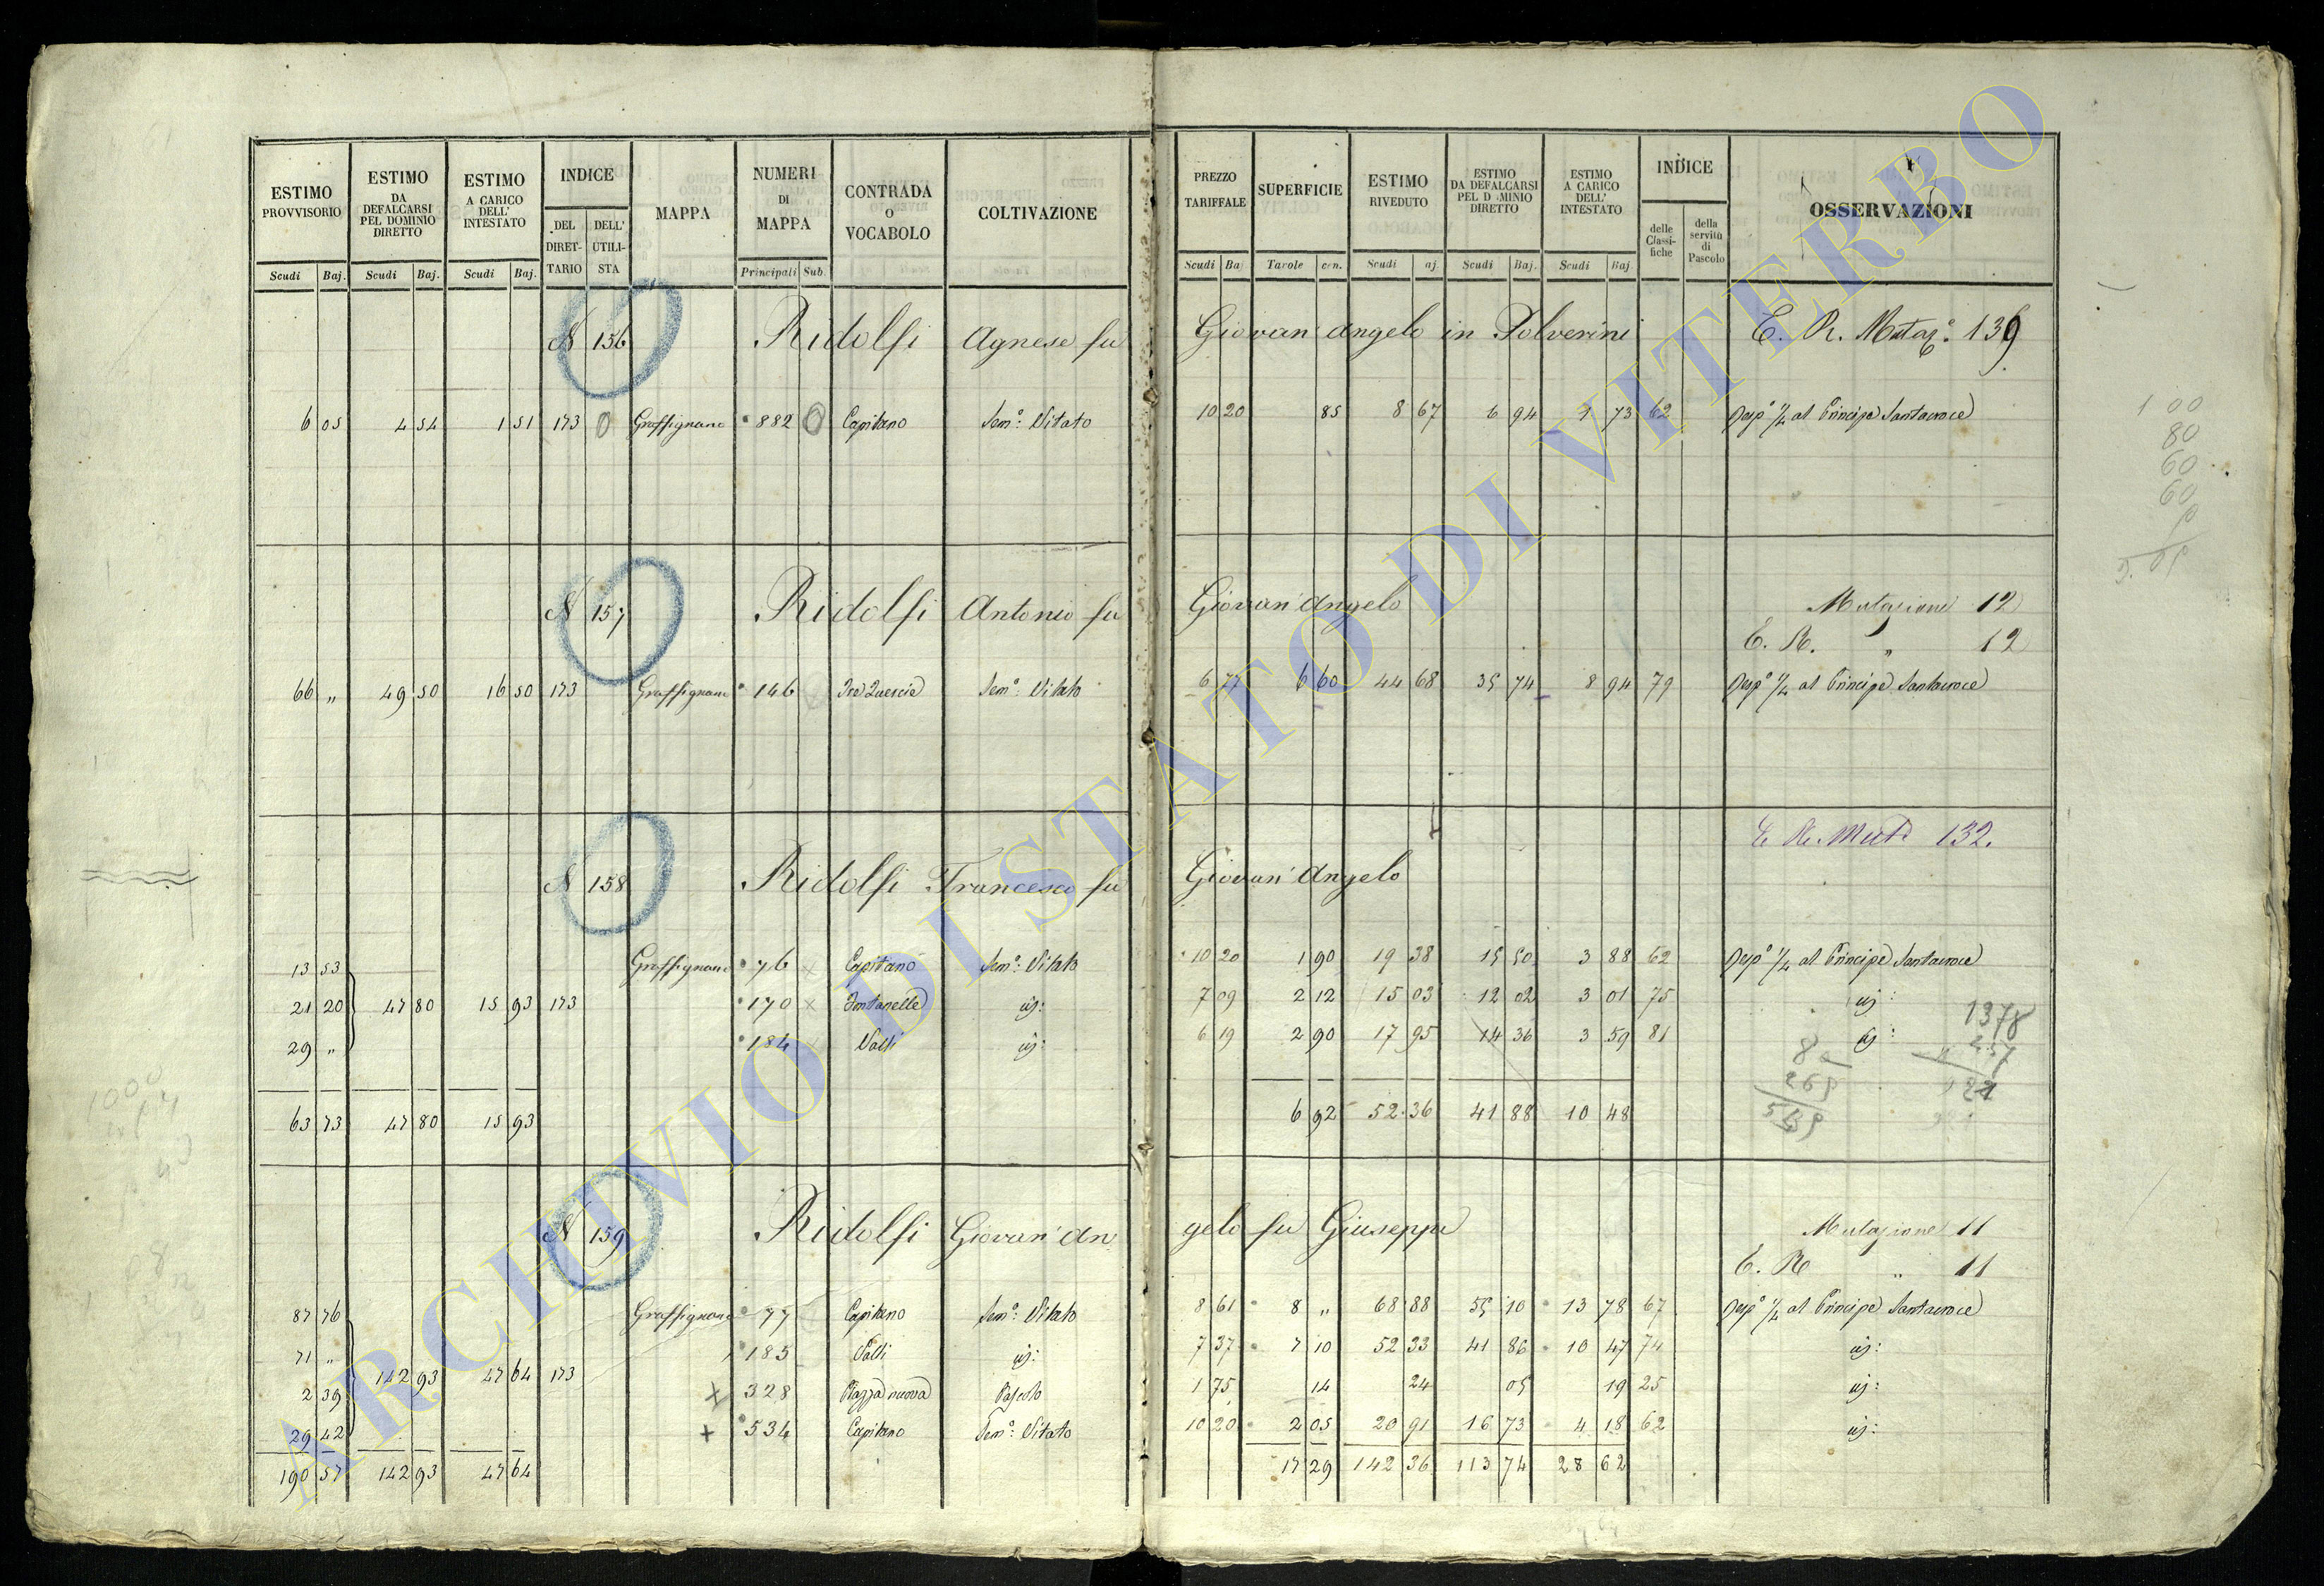 ESTIMO PROVVISORIO | ESTIMO DA DEFALCARSI PEL DOMINIO DIRETTO | ESTIMO A CARICO DELL' INTESTATO | INDICE | MAPPA | NUMERI DI MAPPA | CONTRADA O VOCABOLO | COLTIVAZIONE | PREZZO TARIFFALE | SUPERFICIE | ESTIMO RIVEDUTO | ESTIMO DA DEFALCARSI PEL D MINIO DIRETTO | ESTIMO A CARICO DELL' INTESTATO | INDICE | OSSERVAZIONI
DEL DIRETTARIO | DELL' UTILISTA | delle Classifiche | della servitù di Pascolo
Scudi Baj. | Scudi Baj. | Scudi Baj. | Principali Sub. | Scudi Ba | Tavole cen. | Scudi aj. | Scudi Baj. | Scudi Baj
N 156 Ridolfi Agnese fu Giovan'angelo in Polverini E. R. Mutaz.e 139
6 05 | 4 54 | 1 51 | 173 | 0 | Graffignano | 882 0 | Capitano | Sem.o Vitato | 10 20 | 85 | 8 67 | 6 94 | 1 73 | 62 | Risp.a 1/4 al Principe Santacroce
N 157 Ridolfi Antonio fu Giovan'Angelo Mutazione 12
E. R. " 12
66 " | 49 50 | 16 50 | 173 | Graffignano | 146 | Quercia | Sem.o Vitato | 6 77 | 6 60 | 44 68 | 35 74 | 8 94 | 79 | Risp.a 1/4 al Principe Santacroce
E. R. Mut.e 132.
N 158 Ridolfi Francesco fu Giovan'Angelo
13 53 | Graffignano | 76 | Capitano | Sem.o Vitato | 10 20 | 1 90 | 19 38 | 15 50 | 3 88 | 62 | Risp.a 1/4 al Principe Santacroce
21 20 | 47 80 | 15 93 | 173 | 170 | Fontanelle | id: | 7 09 | 2 12 | 15 03 | 12 02 | 3 01 | 75 | id:
29 " | 184 | Valli | id: | 6 19 | 2 90 | 17 95 | 14 36 | 3 59 | 81 | id:
1378
63 73 | 47 80 | 15 93 | 6 92 | 52 36 | 41 88 | 10 48
N 159 Ridolfi Giovan'Angelo fu Giuseppe Mutazione 11
E. R " 11
87 76 | Graffignano | 77 | Capitano | Sem.o Vitato | 8 61 | 8 " | 68 88 | 55 10 | 13 78 | 67 | Risp.a 1/4 al Principe Santacroce
71 " | 142 93 | 47 64 | 173 | 185 | Valli | id: | 7 37 | 7 10 | 52 33 | 41 86 | 10 47 | 74 | id:
2 39 | 328 | Piazza nuova | Pascolo | 1 75 | 14 | 24 | 05 | 19 | 25 | id:
29 42 | 534 | Capitano | Sem.o Vitato | 10 20 | 2 05 | 20 91 | 16 73 | 4 18 | 62 | id:
190 57 | 142 93 | 47 64 | 17 29 | 142 36 | 113 74 | 28 62
1 00
80
60
60
ARCHIVIO DI STATO DI VITERBO